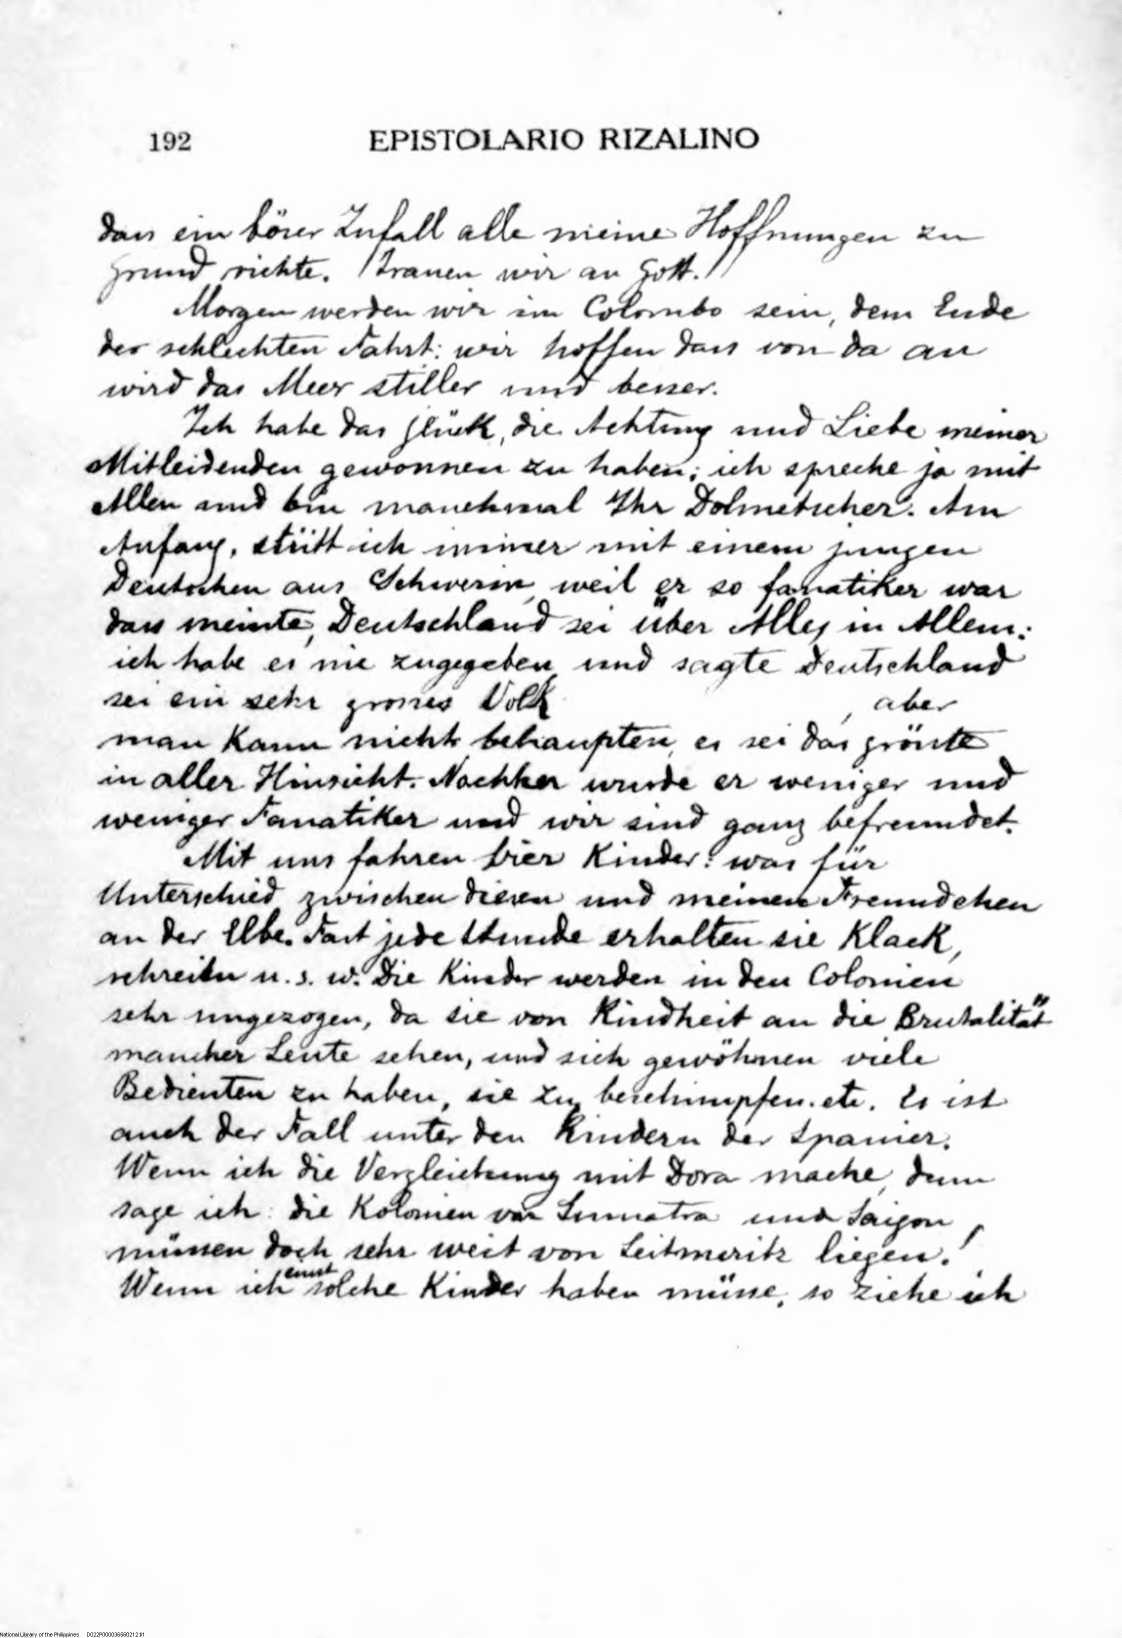 192 EPISTOLARIO RIZALINO
dass ein böser Zufall alle meine Hoffnungen zu
Grund richte. Trauen wir an Gott.
Morgen werden wir im Colombo sein, dem Ende
der schlechten Fahrt: wir hoffen dass von da an
wird das Meer stiller und besser.
Ich habe das Glück, die Achtung und Liebe meiner
Mitleidenden gewonnen zu haben; ich spreche ja mit
Allen und bin manchmal Ihr Dolmetscher. Am
Anfang, stritt ich immer mit einem jungen
Deutschen aus Schwerin, weil er so fanatiker war
dass meinte, Deutschland sei über Alles in Allem:
ich habe es nie zugegeben und sagte Deutschland
sei ein sehr grosses Volk , aber
man kann nicht behaupten, es sei das grösste
in aller Hinsicht. Nachher wurde er weniger und
weniger Fanatiker und wir sind ganz befreundet.
Mit uns fahren vier Kinder: was für
Unterschied zwischen diesen und meinen Freundchen
an der Elbe. Fast jede Stunde erhalten sie Klack,
schreien u. s. w. Die Kinder werden in den Colonien
sehr ungezogen, da sie von Kindheit an die Brutalität
mancher Leute sehen, und sich gewöhnen viele
Bedienten zu haben, sie zu beschimpfen. etc. Es ist
auch der Fall unter den Kindern der Spanier.
Wenn ich die Vergleichung mit Dora mache, dann
sage ich: die Kolonien von Sumatra und Saigon
müssen doch sehr weit von Leitmeritz liegen!
Wenn ich einst solche Kinder haben müsse, so ziehe ich
National Library of the Philippines